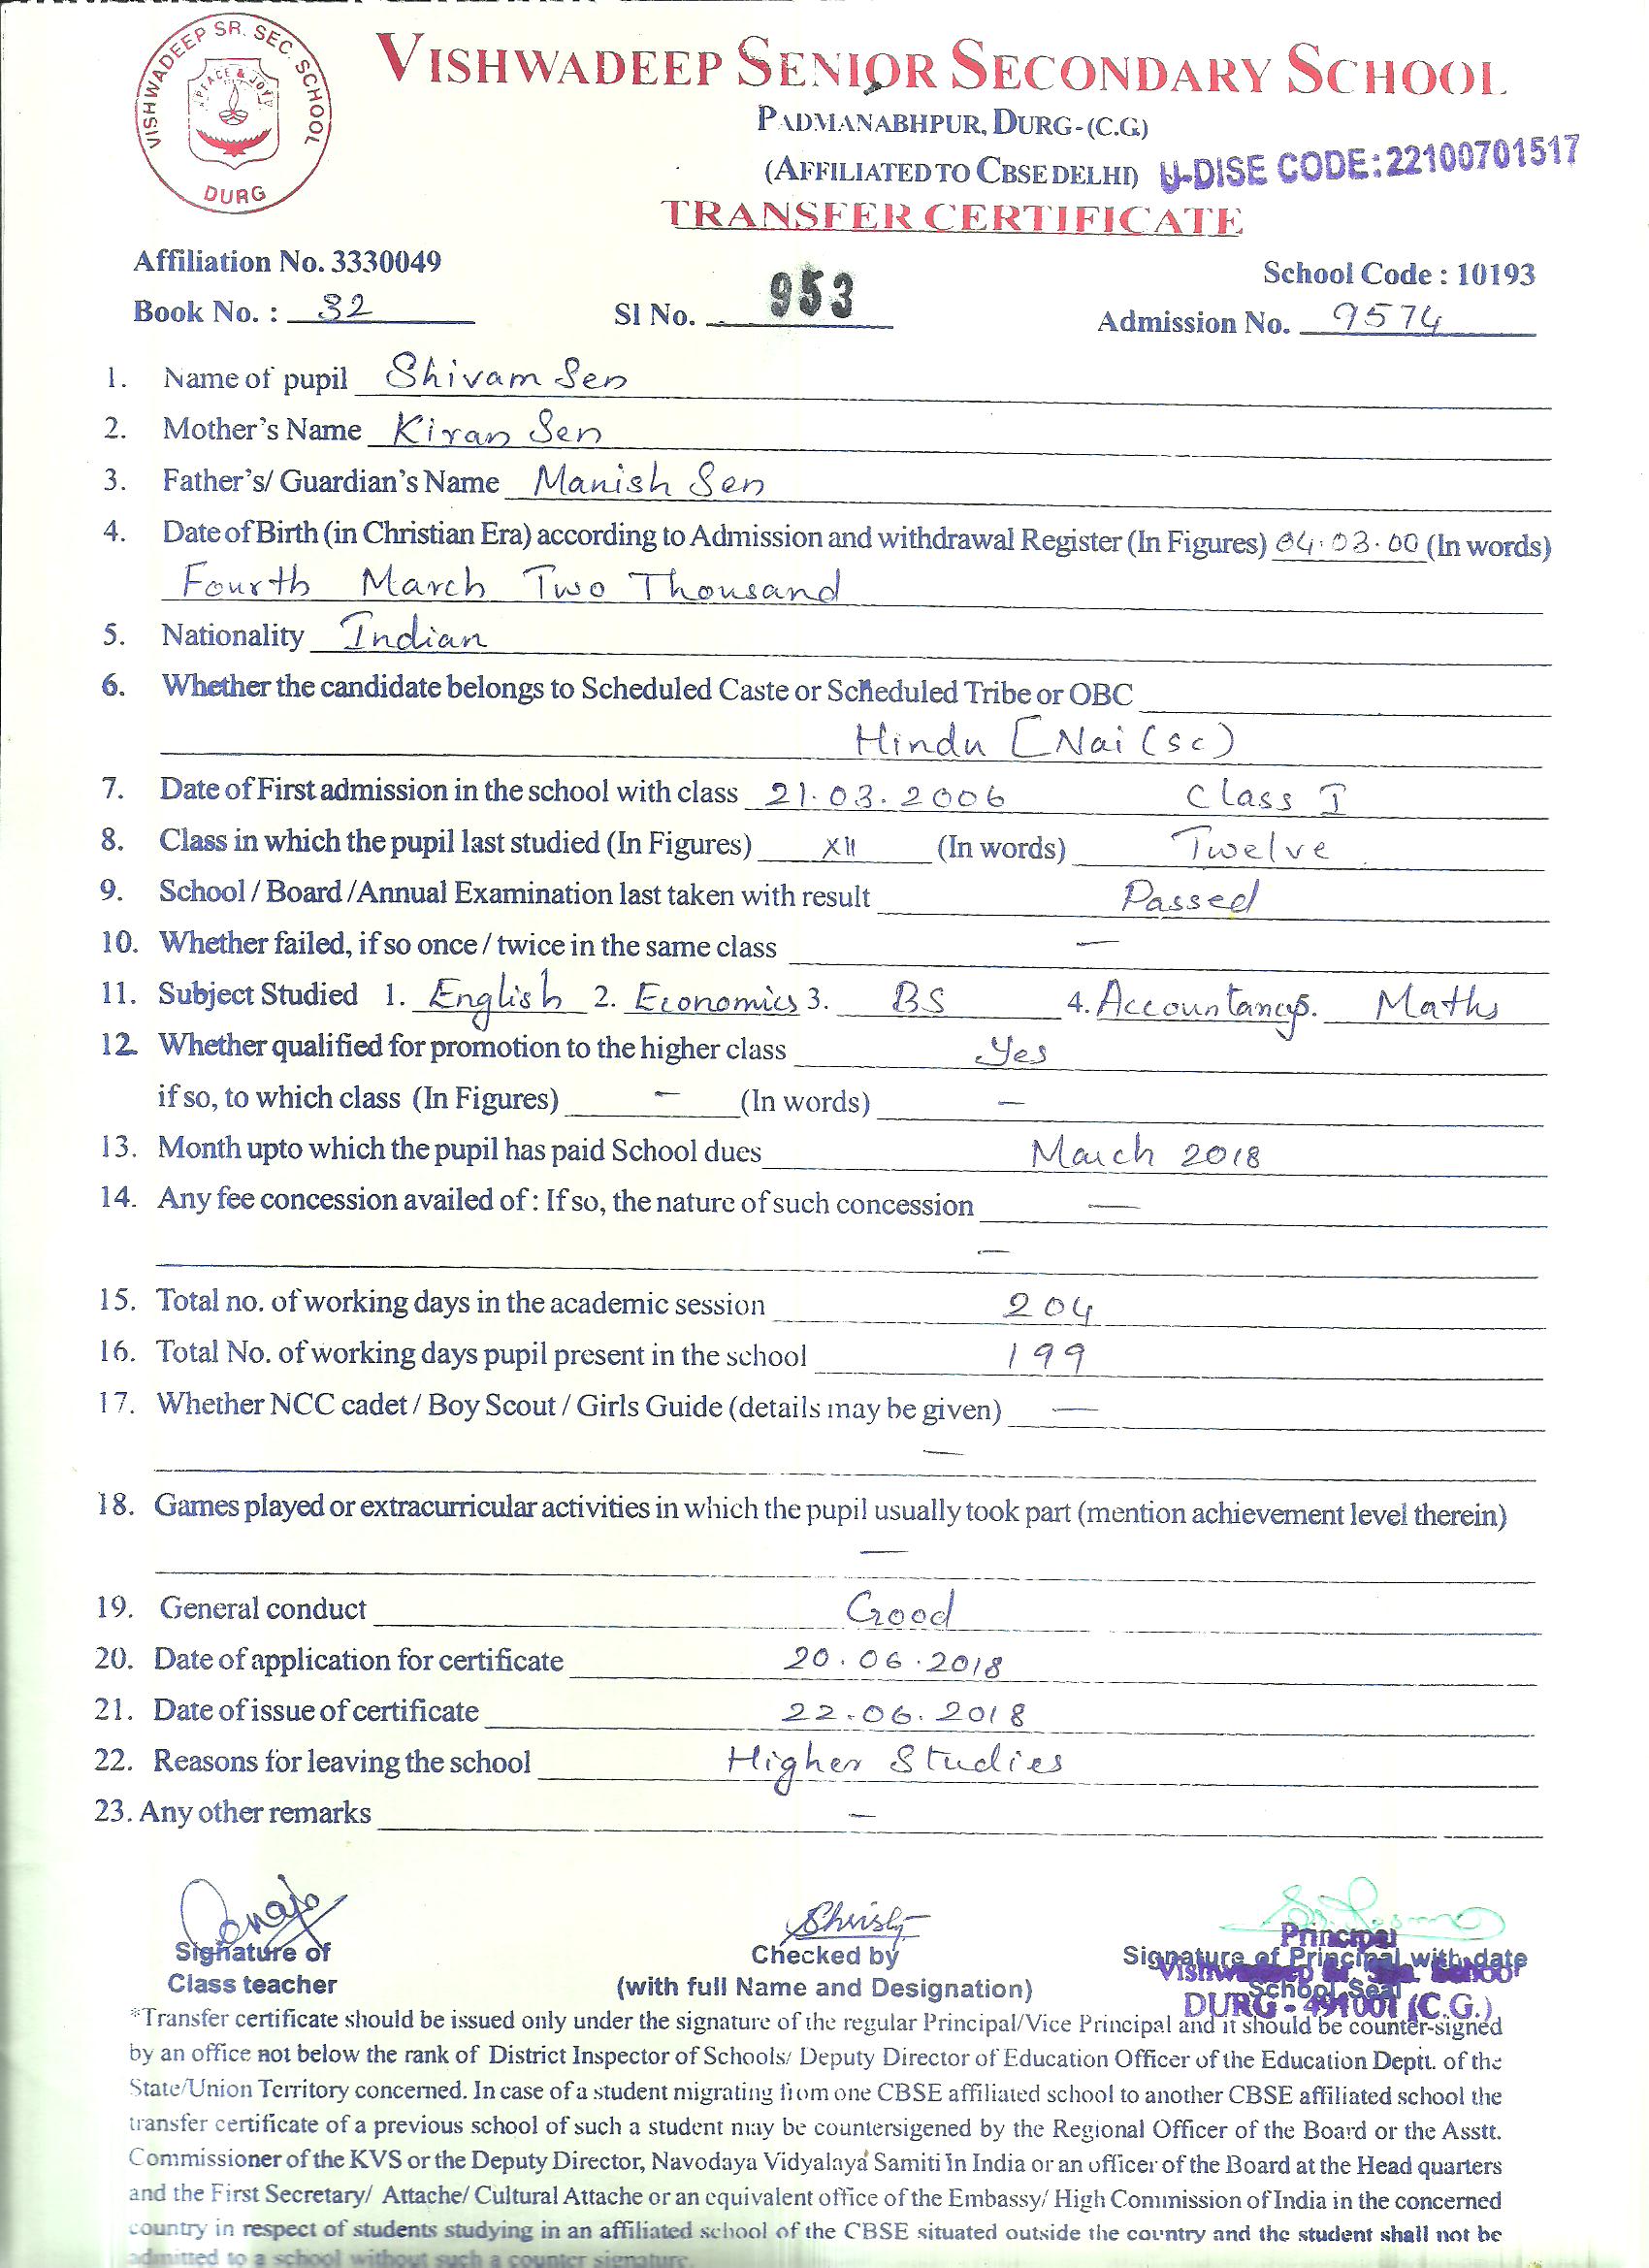 VISHWADEEP SR. SEC. SCHOOL
PEACE & JOY
DURG
VISHWADEEP SENIOR SECONDARY SCHOOL
PADMANABHPUR, DURG-(C.G.)
(AFFILIATED TO CBSE DELHI) U-DISE CODE:22100701517
TRANSFER CERTIFICATE
Affiliation No. 3330049
School Code : 10193
Book No. : 32 Sl No. 953 Admission No. 9574
1. Name of pupil Shivam Sen
2. Mother's Name Kiran Sen
3. Father's/ Guardian's Name Manish Sen
4. Date of Birth (in Christian Era) according to Admission and withdrawal Register (In Figures) 04.03.00 (In words)
Fourth March Two Thousand
5. Nationality Indian
6. Whether the candidate belongs to Scheduled Caste or Scheduled Tribe or OBC
Hindu [Nai (sc)
7. Date of First admission in the school with class 21.03.2006 Class I
8. Class in which the pupil last studied (In Figures) XII (In words) Twelve
9. School / Board /Annual Examination last taken with result Passed
10. Whether failed, if so once / twice in the same class —
11. Subject Studied 1. English 2. Economics 3. BS 4. Accountancy 5. Maths
12. Whether qualified for promotion to the higher class Yes
if so, to which class (In Figures) — (In words) —
13. Month upto which the pupil has paid School dues March 2018
14. Any fee concession availed of : If so, the nature of such concession —
—
15. Total no. of working days in the academic session 204
16. Total No. of working days pupil present in the school 199
17. Whether NCC cadet / Boy Scout / Girls Guide (details may be given) —
—
18. Games played or extracurricular activities in which the pupil usually took part (mention achievement level therein)
—
19. General conduct Good
20. Date of application for certificate 20.06.2018
21. Date of issue of certificate 22.06.2018
22. Reasons for leaving the school Higher Studies
23. Any other remarks —
Principal
Signature of Checked by Signature of Principal with date
Class teacher (with full Name and Designation) School Seal
DURG - 491001 (C.G.)
*Transfer certificate should be issued only under the signature of the regular Principal/Vice Principal and it should be counter-signed
by an office not below the rank of District Inspector of Schools/ Deputy Director of Education Officer of the Education Deptt. of the
State/Union Territory concerned. In case of a student migrating from one CBSE affiliated school to another CBSE affiliated school the
transfer certificate of a previous school of such a student may be countersigened by the Regional Officer of the Board or the Asstt.
Commissioner of the KVS or the Deputy Director, Navodaya Vidyalaya Samiti in India or an officer of the Board at the Head quarters
and the First Secretary/ Attache/ Cultural Attache or an equivalent office of the Embassy/ High Commission of India in the concerned
country in respect of students studying in an affiliated school of the CBSE situated outside the country and the student shall not be
admitted to a school without such a counter signature.